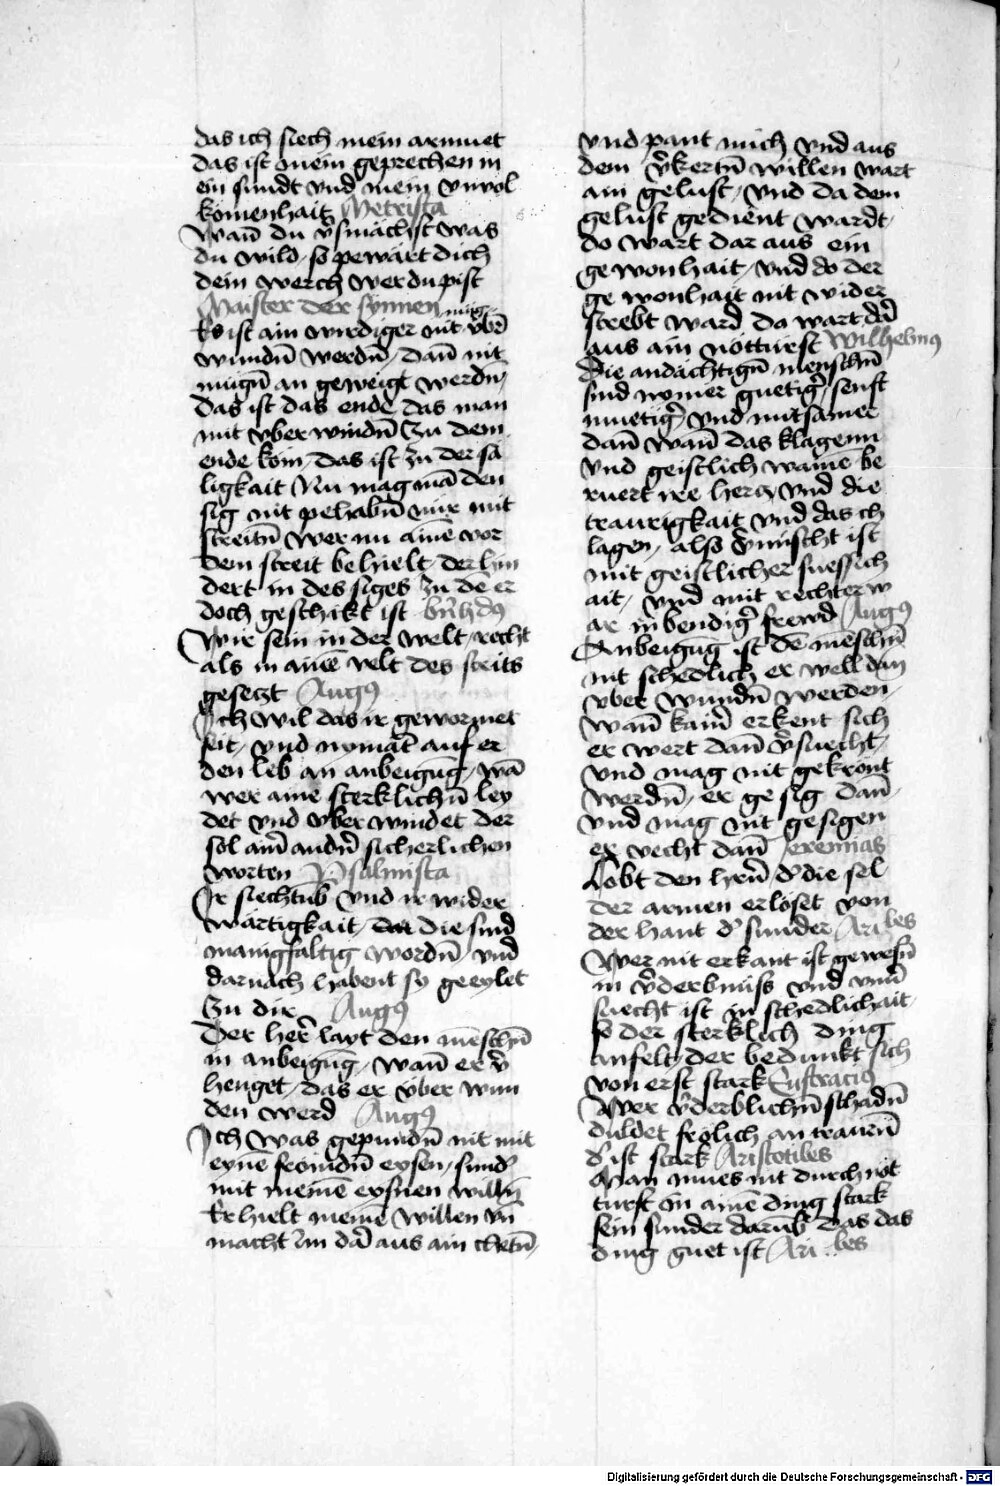 das ich siech mein armuet
das ist mein geprechen in
ein sundt vnd mein vnvol
komenhait Metrista
Wan̄ du v̓smächst was
du wild, so pewärt dich
dein werch wer du pist
Maister der synnen
Es ist ain wirdiger nit vb̓
wundn̄ werdn̄, dan̄ nit
mügn̄ an geweigt werdn̄,
das ist das ende das man
mit vber windn̄ zu dem
ende kom, das ist zu der sä
ligkait Nu mag mā den
sig nit pehabn̄ nür mit
streitn̄ wer nu ainē vor
dem streit behielt, der hin
dert in des siges zu dē er
doch geschikt ist
Wir sein in der welt, recht
als in ainē velt des streits
gesetzt Augꝰ
Ich wil das ir gewornet
seit, vnd nymāt auf er
den leb an anbeigūg, wā
wer aine sterklichn̄ ley
det vnd vber windet der
sol aīn̄ andn̄ sicherlichen
worten Psalmista
Ir siechtūb vnd ir wider
wärtigkait die sind
manigfaltig wordn̄ vnd
darnach habent sy geeylet
zu dir Augꝰ
Der her̄ layt den mēschn̄
in anbeigūg, wan̄ er v̓
henget, das er vber wun
den werd Augꝰ
Ich was gepundn̄ nit mit
eynē frömdn̄ eysen, sund̓
mit meinē eysnen willn̄
Er hielt meinē willen vn̄
macht im dā aus ain chetn̄,
vnd pant mich vnd aus
dem v̓kertn̄ willen wart
ain gelust, vnd da dem
gelust gedient wardt,
do wart dar aus ein
gewonhait, vnd do der
ge wonhait nit wider
strebt ward da wart dā
aus ain notturft Wilhelmꝰ
Die andächtign̄ menschn̄
sind nymer guetig̓, senft
muetig̓, vnd mitsamer
dan̄ wan̄ das klagenn
vnd geistlich wainē be
ruert ire hercz, vnd die
traurigkait vnd das ch
lagen, also v̓mischt ist
mit geistlicher suessich
ait, vnd mit rechter w
ar inbendig̓ frewd Augꝰ
Anbeigūg ist dē meschn̄
nit schedlich er well dan̄
vber wundn̄ werden,
wan̄ kain̄ erkent sich
er wert dan̄ v̓suecht,
vnd mag nit gekrönt
werdn̄, er ge sig dan̄,
vnd mag nit gesigen
er vecht dan̄ Jeremias
Lobt den hrn̄ d̓ die sel
der armen erlöset von
der hant d̓ sunder
Wer nit erkant ist gewesn̄
in v̓derbnüss vnd vnv̓
suecht ist in schedlichait,
so der sterklich ding
anfelt, der bedunkt sich
von erst stark Eustracius
Wer v̓derblichn̄ schadn̄
duldet frölich an traurn̄
d̓ ist stark Aristotiles
Man mues nit durch not
turft in ainē ding stark
sein sunder darūb das das
ding guet ist